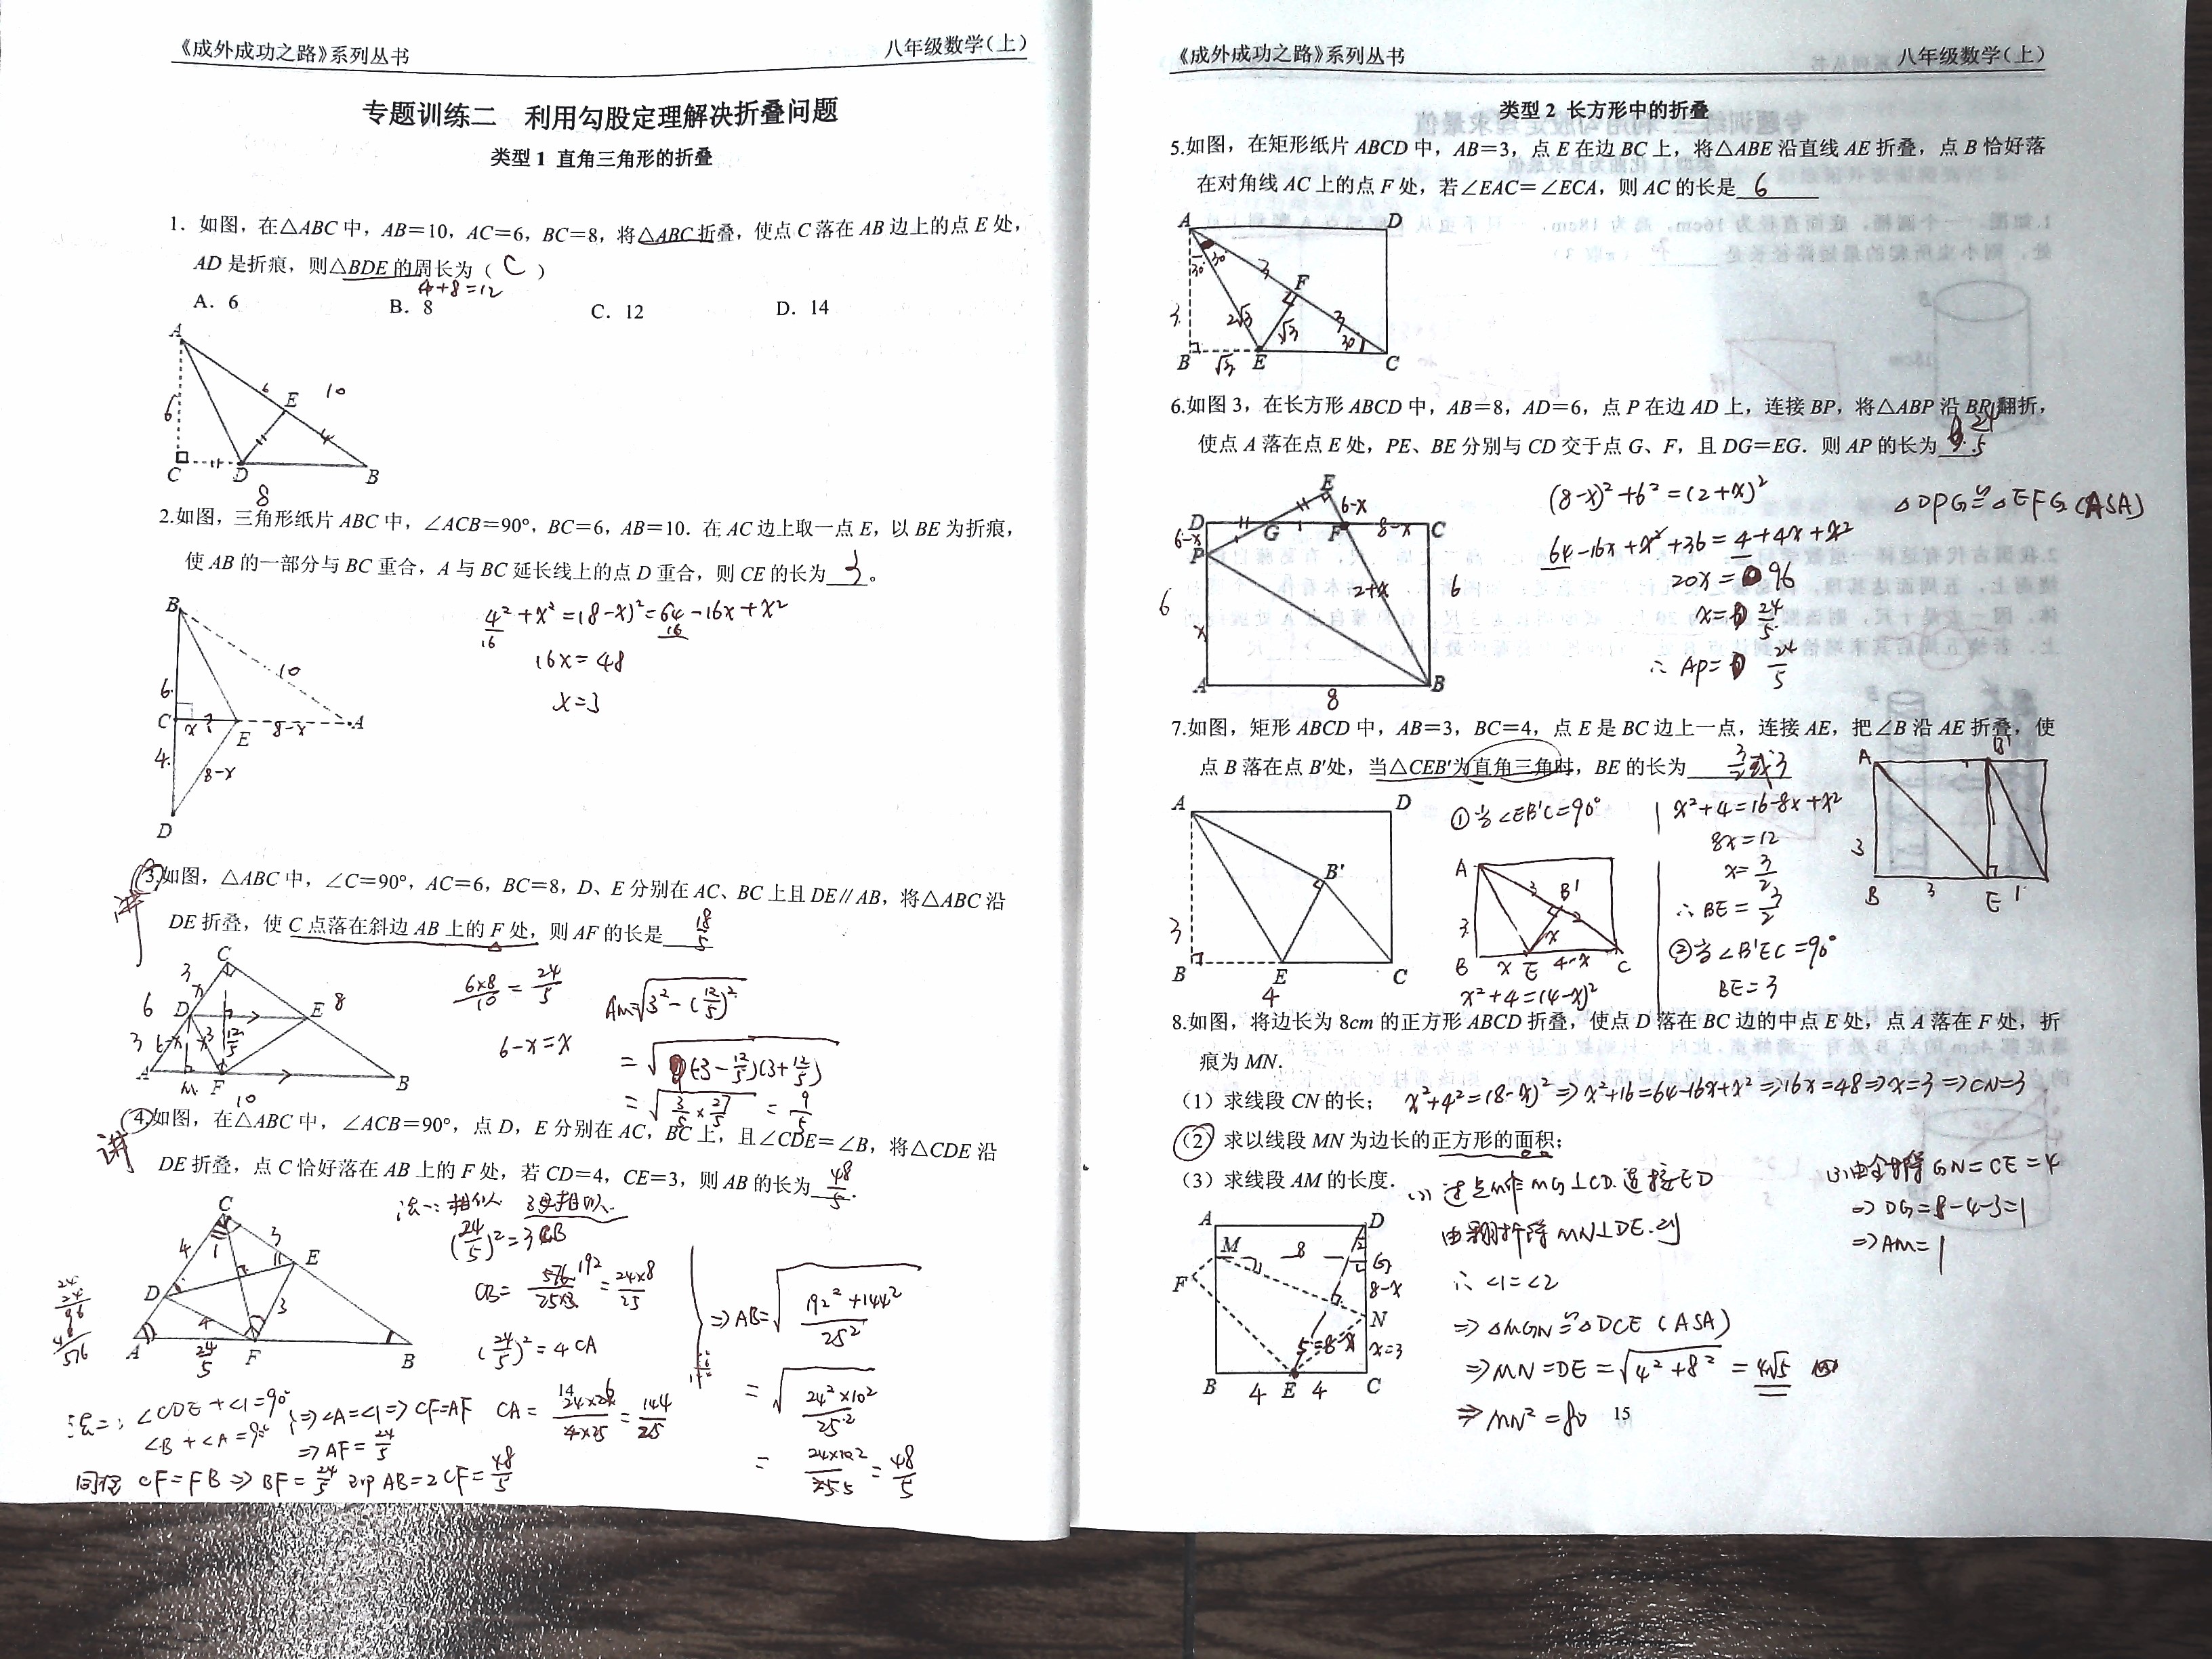 《成外成功之路》系列丛书
八年级数学(上)
专题训练二 利用勾股定理解决折叠问题
类型1 直角三角形的折叠
1. 如图，在△ABC中，AB=10，AC=6，BC=8，将△ABC折叠，使点C落在AB边上的点E处，
AD是折痕，则△BDE的周长为（ C ）
4+8=12
A. 6 B. 8 C. 12 D. 14
A
6 10
6 E
4
C D B
8
2.如图，三角形纸片ABC中，∠ACB=90°，BC=6，AB=10．在AC边上取一点E，以BE为折痕，
使AB的一部分与BC重合，A与BC延长线上的点D重合，则CE的长为 3 。
4²+x²=(8-x)²=64-16x+x²
16 16
16x=48
x=3
B
10
6
C x E 8-x A
4
8-x
D
3.如图，△ABC中，∠C=90°，AC=6，BC=8，D、E分别在AC、BC上且DE∥AB，将△ABC沿
讲
DE折叠，使C点落在斜边AB上的F处，则AF的长是 18/5
C
3
6 D E 8
3 12/5
A M F B
10
6×8/10=24/5
6-x=x
AM=√(3²-(12/5)²)
=√((3-12/5)(3+12/5))
=√(3/5×27/5)=9/5
4.如图，在△ABC中，∠ACB=90°，点D，E分别在AC，BC上，且∠CDE=∠B，将△CDE沿
讲
DE折叠，点C恰好落在AB上的F处，若CD=4，CE=3，则AB的长为 48/5 .
法一：相似
(24/5)²=3CB
CB=576/25×3=24×8/25
192
(24/5)²=4CA
CA=24×24/4×25=144/25
⇒AB=√((192²+144²)/25²)
=√(24²×10²/25²)
=48/5
C
4 1 3
D E
4 3
A 24/5 F B
法二：∠CDE+∠1=90°
∠B+∠A=90°
⇒∠A=∠1⇒CF=AF
⇒AF=24/5
同理 CF=FB⇒BF=24/5 即AB=2CF=48/5
《成外成功之路》系列丛书
八年级数学(上)
类型2 长方形中的折叠
5.如图，在矩形纸片ABCD中，AB=3，点E在边BC上，将△ABE沿直线AE折叠，点B恰好落
在对角线AC上的点F处，若∠EAC=∠ECA，则AC的长是 6
A D
30 30 3
F
3 2√3 √3 3
30
B √3 E C
6.如图3，在长方形ABCD中，AB=8，AD=6，点P在边AD上，连接BP，将△ABP沿BP翻折，
使点A落在点E处，PE、BE分别与CD交于点G、F，且DG=EG．则AP的长为 24/5
E
6-x
D G F 8-x C
6-x
P
2+x
6 6
x
A 8 B
(8-x)²+6²=(2+x)²
64-16x+x²+36=4+4x+x²
20x=96
x=24/5
∴AP=24/5
△DPG≌△EFG(ASA)
7.如图，矩形ABCD中，AB=3，BC=4，点E是BC边上一点，连接AE，把∠B沿AE折叠，使
点B落在点B′处，当△CEB′为直角三角时，BE的长为 3/2或3
A D
B′
3
B E C
4
①当∠EB′C=90°
A
3 B′
3 2
x
B x E 4-x C
x²+4=(4-x)²
x²+4=16-8x+x²
8x=12
x=3/2
∴BE=3/2
②当∠B′EC=90°
BE=3
A B′
3
B 3 E 1
8.如图，将边长为8cm的正方形ABCD折叠，使点D落在BC边的中点E处，点A落在F处，折
痕为MN.
（1）求线段CN的长； x²+4²=(8-x)²⇒x²+16=64-16x+x²⇒16x=48⇒x=3⇒CN=3
（2）求以线段MN为边长的正方形的面积；
（3）求线段AM的长度．
A D
M 8 G
F 8-x
N
5=8-x x=3
B 4 E 4 C
(2) 过点M作MG⊥CD.连接ED
由翻折得MN⊥DE.
∴∠1=∠2
⇒△MGN≌△DCE(ASA)
⇒MN=DE=√(4²+8²)=4√5
⇒MN²=80
(3)由全等得GN=CE=4
⇒DG=8-4-3=1
⇒AM=1
15